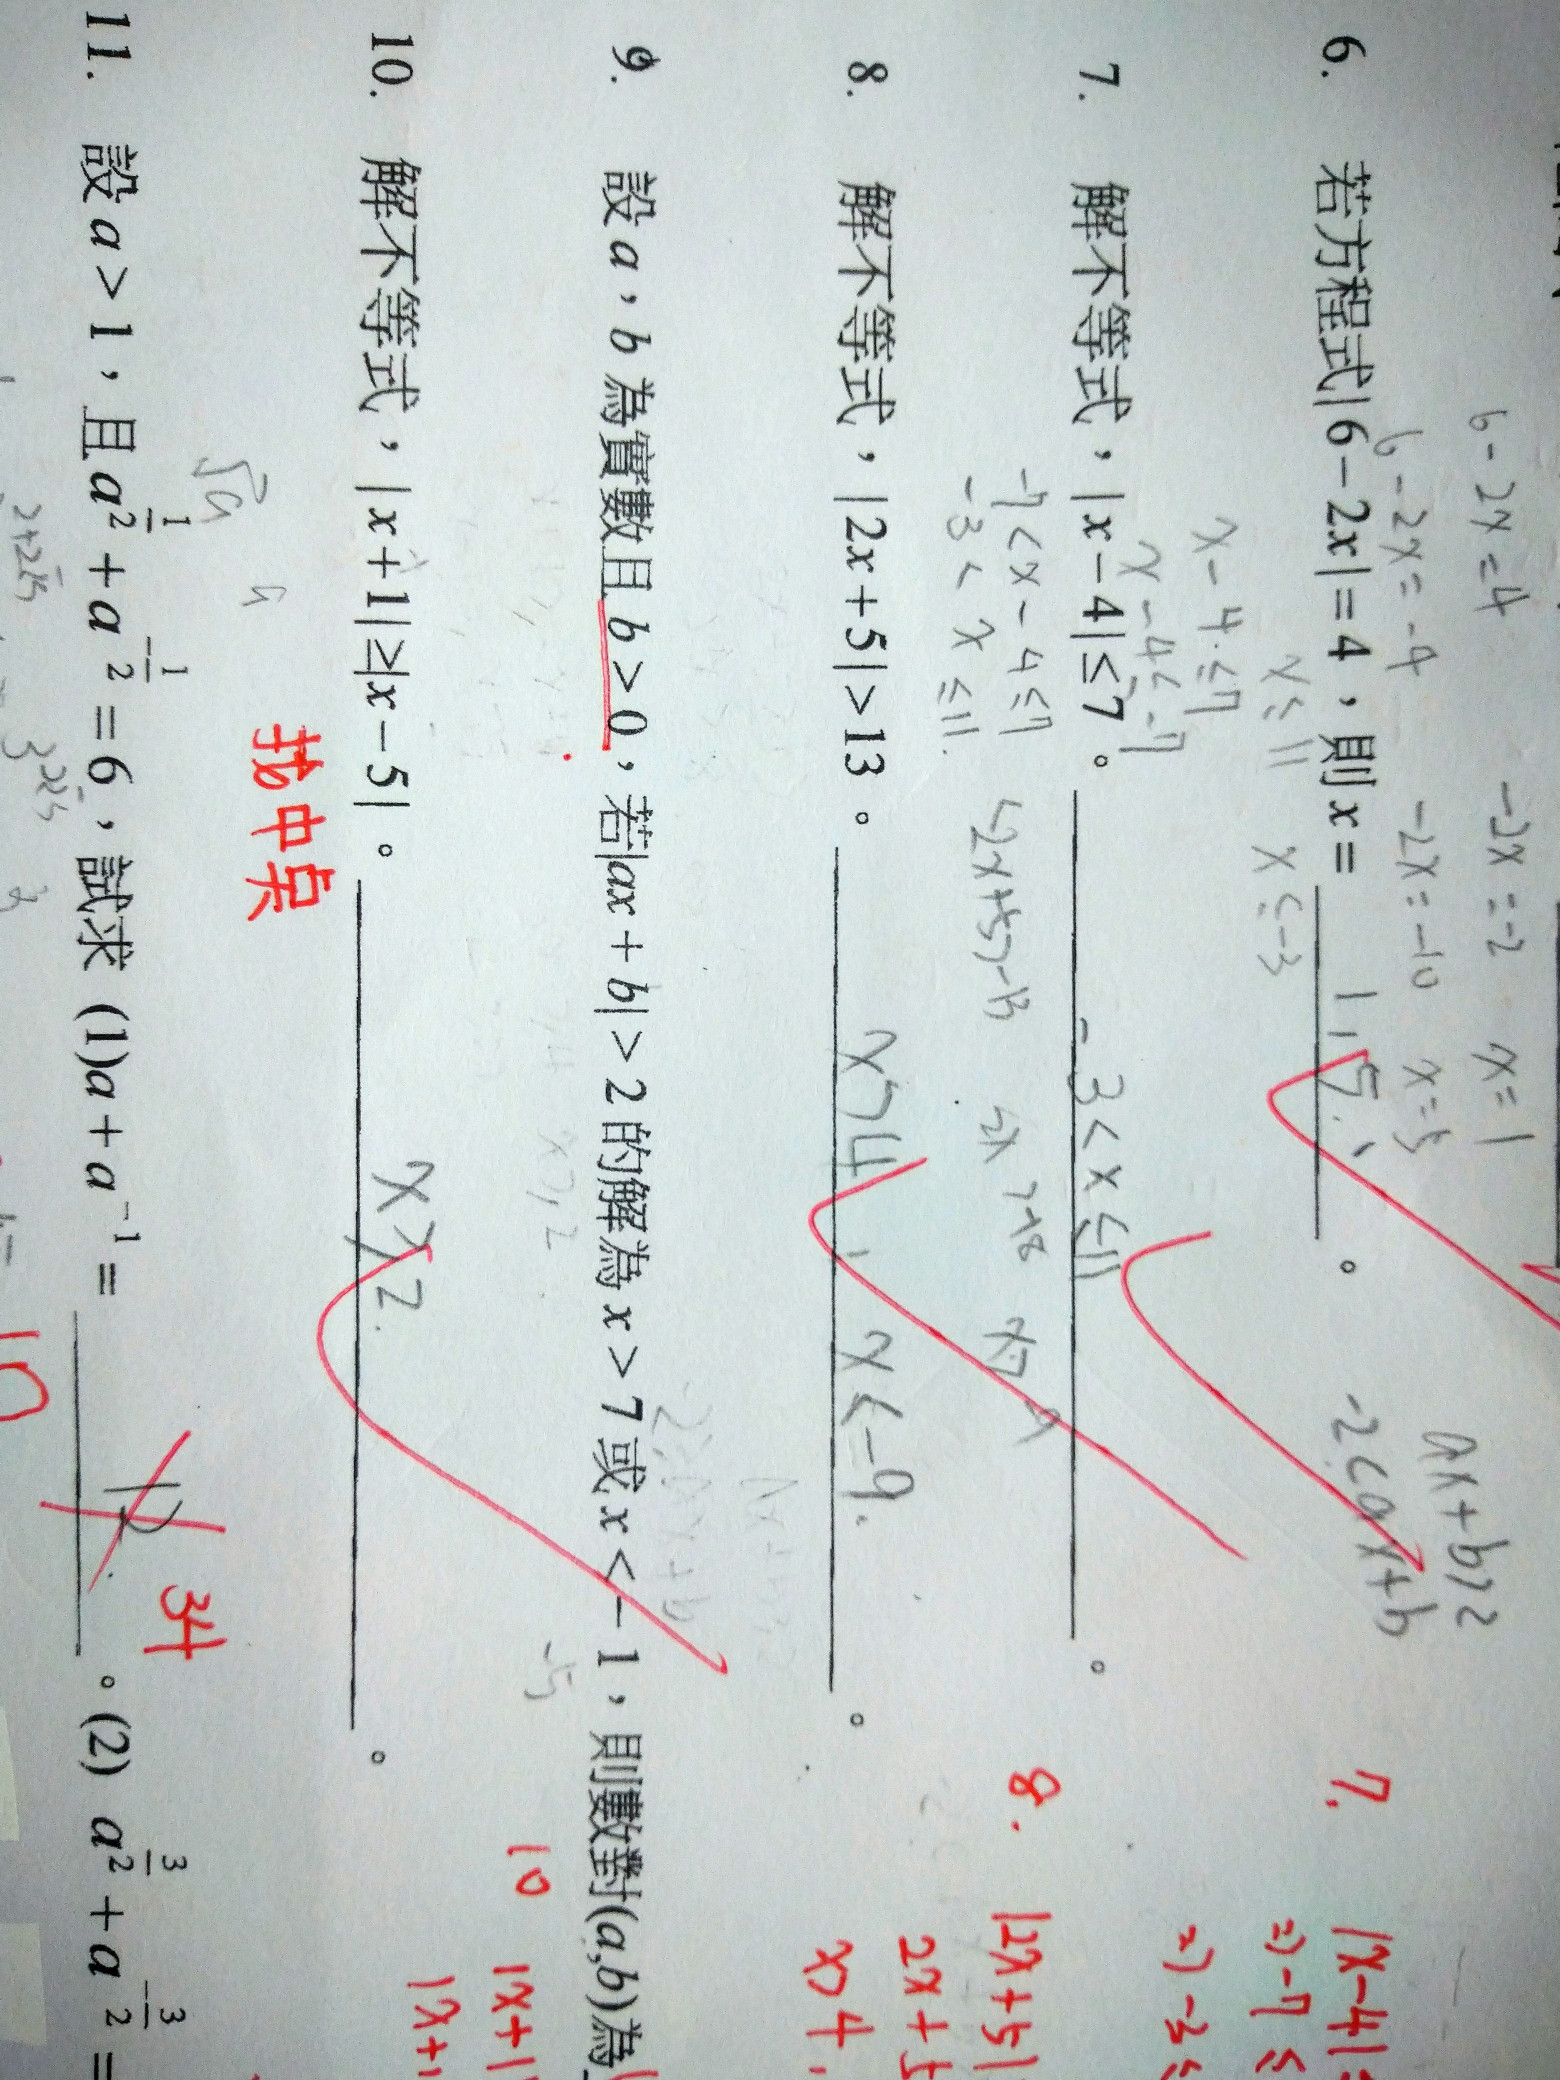 6-2x=4 -2x=-2 x=1
6-2x=-4 -2x=-10 x=5
6. 若方程式|6-2x|=4，則x= 1, 5. 。
ax+b>2
-2<ax+b
x-4≤7 x≤11
x-4<-7 x≤-3
7. 解不等式，|x-4|≤7。 -3<x≤11 。
7. |x-4|≤
⇒-7≤
⇒-3≤
-7<x-4≤7
-3<x≤11.
8. 解不等式，|2x+5|>13。 x>4, x<-9. 。
8. |2x+5|
2x+5
x>4,
9. 設a，b為實數且b>0，若|ax+b|>2的解為x>7或x<-1，則數對(a,b)為
10. 解不等式，|x+1|≥|x-5|。 x≥2. 。
10 |x+1|
|x+1
找中桌
11. 設a>1，且a^{1/2}+a^{-1/2}=6，試求 (1)a+a^{-1}= 12. 。(2) a^{3/2}+a^{-3/2}=
34
√a
10